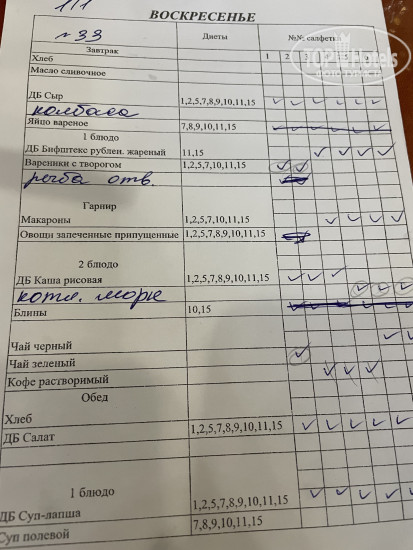 1/1
ВОСКРЕСЕНЬЕ
№ 33 Диеты №№ салфеть
Завтрак 1 2 3
Хлеб
Масло сливочное
ДБ Сыр 1,2,5,7,8,9,10,11,15
колбаса
Яйцо вареное 7,8,9,10,11,15
1 блюдо
ДБ Бифштекс рублен. жареный 11,15
Вареники с творогом 1,2,5,7,10,11,15
рыба отв.
Гарнир
Макароны 1,2,5,7,10,11,15
Овощи запеченные припущенные 1,2,5,7,8,9,10,11,15
2 блюдо
ДБ Каша рисовая 1,2,5,7,8,9,10,11,15
котл. морк
Блины 10,15
Чай черный
Чай зеленый
Кофе растворимый
Обед
Хлеб
ДБ Салат 1,2,5,7,8,9,10,11,15
1 блюдо
ДБ Суп-лапша 1,2,5,7,8,9,10,11,15
Суп полевой 7,8,9,10,11,15